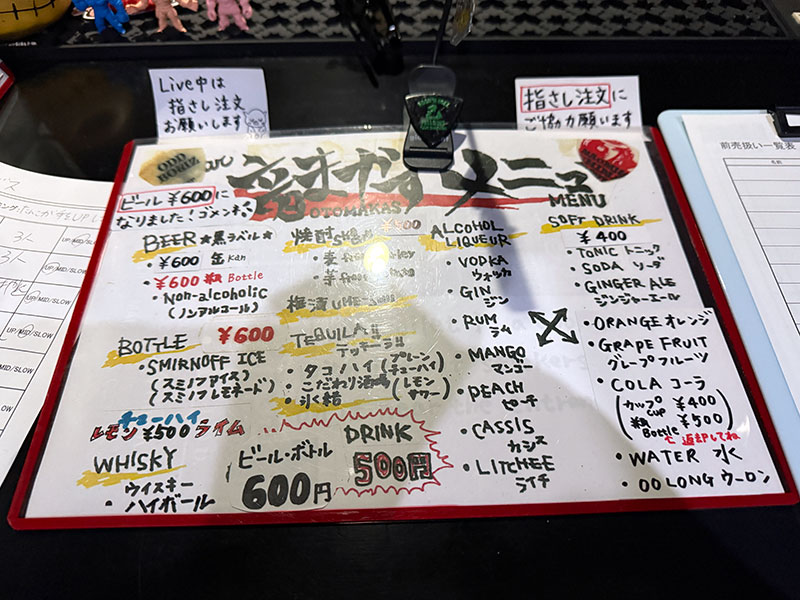 Live中は
指さし注文
お願いします
指さし注文に
ご協力願います
前売扱い一覧表
音まかすメニュー
OTOMAKAS
MENU
ビール ¥600に
なりました！ゴメンネ。
BEER ★黒ラベル★
・¥600 缶 Kan
・¥600 Bottle
・Non-alcoholic
(ノンアルコール)
BOTTLE ¥600
・SMIRNOFF ICE
(スミノフアイス)
(スミノフレモネード)
チューハイ
レモン ¥500 ライム
WHISKY
・ウィスキー
・ハイボール
焼酎
・麦
・芋
梅酒 UME-
TEQUILA!!
テッキーラ!!
・タコハイ (プレーン チューハイ)
・こだわり酒場 (レモン サワー)
・氷結
ビール・ボトル
600円
DRINK
500円
ALCOHOL
LIQUEUR
・VODKA
ウォッカ
・GIN
ジン
・RUM
ラム
・MANGO
マンゴー
・PEACH
ピーチ
・CASSIS
カシス
・LITCHEE
ライチ
SOFT DRINK
¥400
・TONIC トニック
・SODA ソーダ
・GINGER ALE
ジンジャーエール
・ORANGE オレンジ
・GRAPE FRUIT
グレープフルーツ
・COLA コーラ
(カップ CUP ¥400
Bottle ¥500)
返却してね
・WATER 水
・OOLONG ウーロン
UP/MID/SLOW
UP/MID/SLOW
UP/MID/SLOW
UP/MID/SLOW